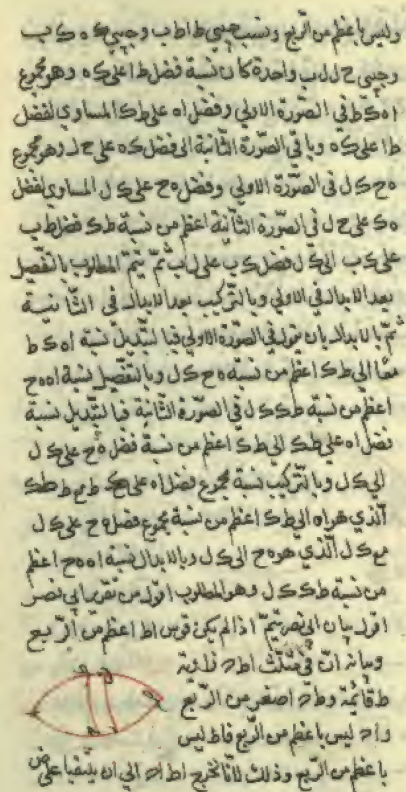 وليس باعظم من الربع ونسب جيبي ط ا ط ب وجيبي ه ك ب
وجيبي ح ل ل ب واحدة كانت نسبة فضل ط ا على ك ه وهو مجموع
ا ه ك ط في الصورة الاولي وفضل ا ه على ط ك المساوي لفضل
ط ا على ك ه وباقي الصورة الثانية الى فضل ك ه على ح ل وهو مجموع
ه ح ك ل في الصورة الاولي وفضل ه ح على ك ل المساوي لفضل
ه ك على ح ل في الصورة الثانية اعظم من نسبة ط ك فضل ط ب
على ك ب الى ك ل فضل ك ب على ل ب ثم يتم المطلوب بالتفصيل
بعد الابدال في الاولي وبالتركيب بعد الابدال في الثانية
ثم بالابدال بان نقول في الصورة الاولي فبالتبديل نسبة ا ه ك ط
معا الى ط ك اعظم من نسبة ه ح ك ل وبالتفصيل نسبة ا ه ه ح
اعظم من نسبة ط ك ك ل في الصورة الثانية فبالتبديل نسبة
فضل ا ه على ط ك الى ط ك اعظم من نسبة فضل ه ح على ك ل
الى ك ل وبالتركيب نسبة مجموع فضل ا ه على ط ك مع ط ك
الذي هو ا ه الى ط ك اعظم من نسبة مجموع فضل ه ح على ك ل
مع ك ل الذي هو ه ح الى ك ل وبالابدال نسبة ا ه ه ح اعظم
من نسبة ط ك ك ل وهو المطلوب اقول من تقرير ابي نصر
اقول بيان ابي نصر يتم اذا لم يكن قوس ا ط اعظم من الربع
وبيانه ان في مثلث ا ط ح زاوية
ط قائمة و ط ح اصغر من الربع
و ا ح ليس باعظم من الربع فا ط ليس
باعظم من الربع وذلك لانا نخرج ا ط ا ح الى ان يلتقيا على ض